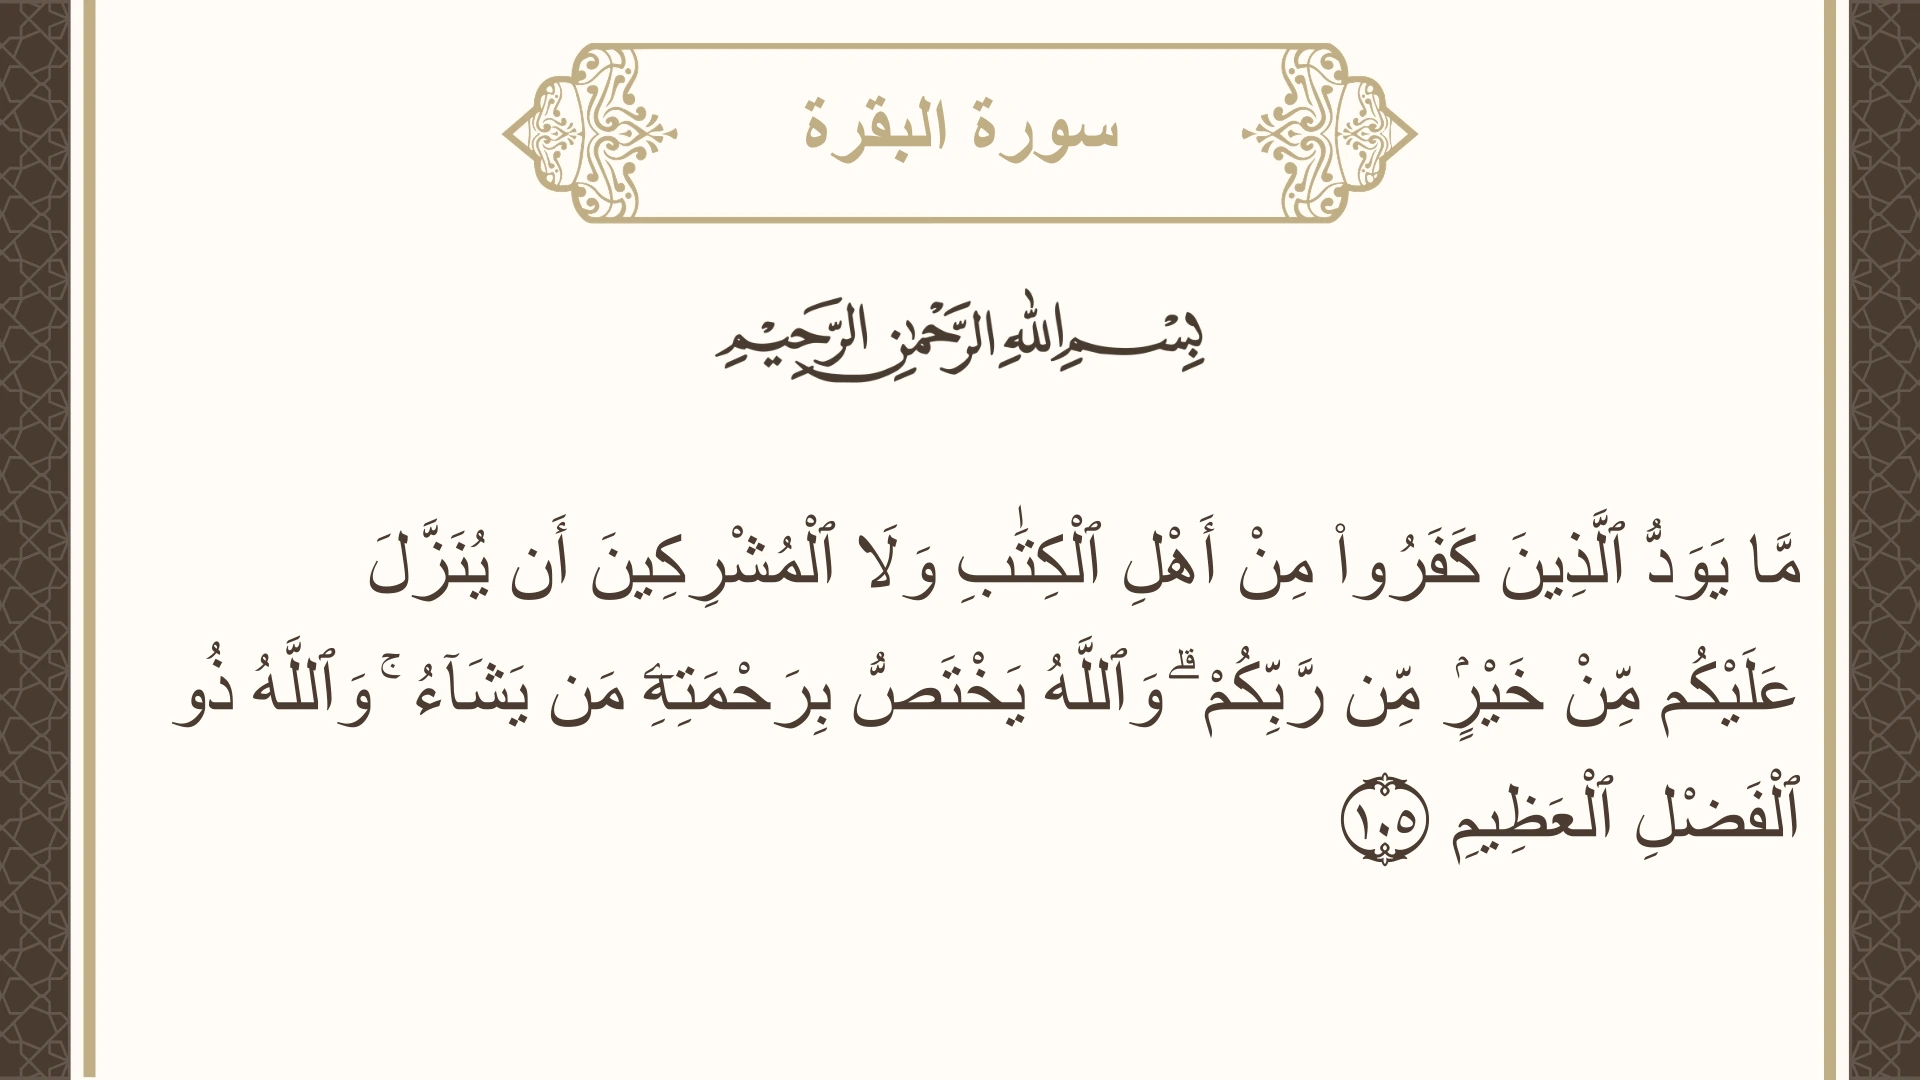 سورة البقرة
بِسْمِ اللهِ الرَّحْمٰنِ الرَّحِيْمِ
مَّا يَوَدُّ ٱلَّذِينَ كَفَرُواْ مِنْ أَهْلِ ٱلْكِتَٰبِ وَلَا ٱلْمُشْرِكِينَ أَن يُنَزَّلَ
عَلَيْكُم مِّنْ خَيْرٍۢ مِّن رَّبِّكُمْ ۗ وَٱللَّهُ يَخْتَصُّ بِرَحْمَتِهِۦ مَن يَشَآءُ ۚ وَٱللَّهُ ذُو
ٱلْفَضْلِ ٱلْعَظِيمِ ١٠٥